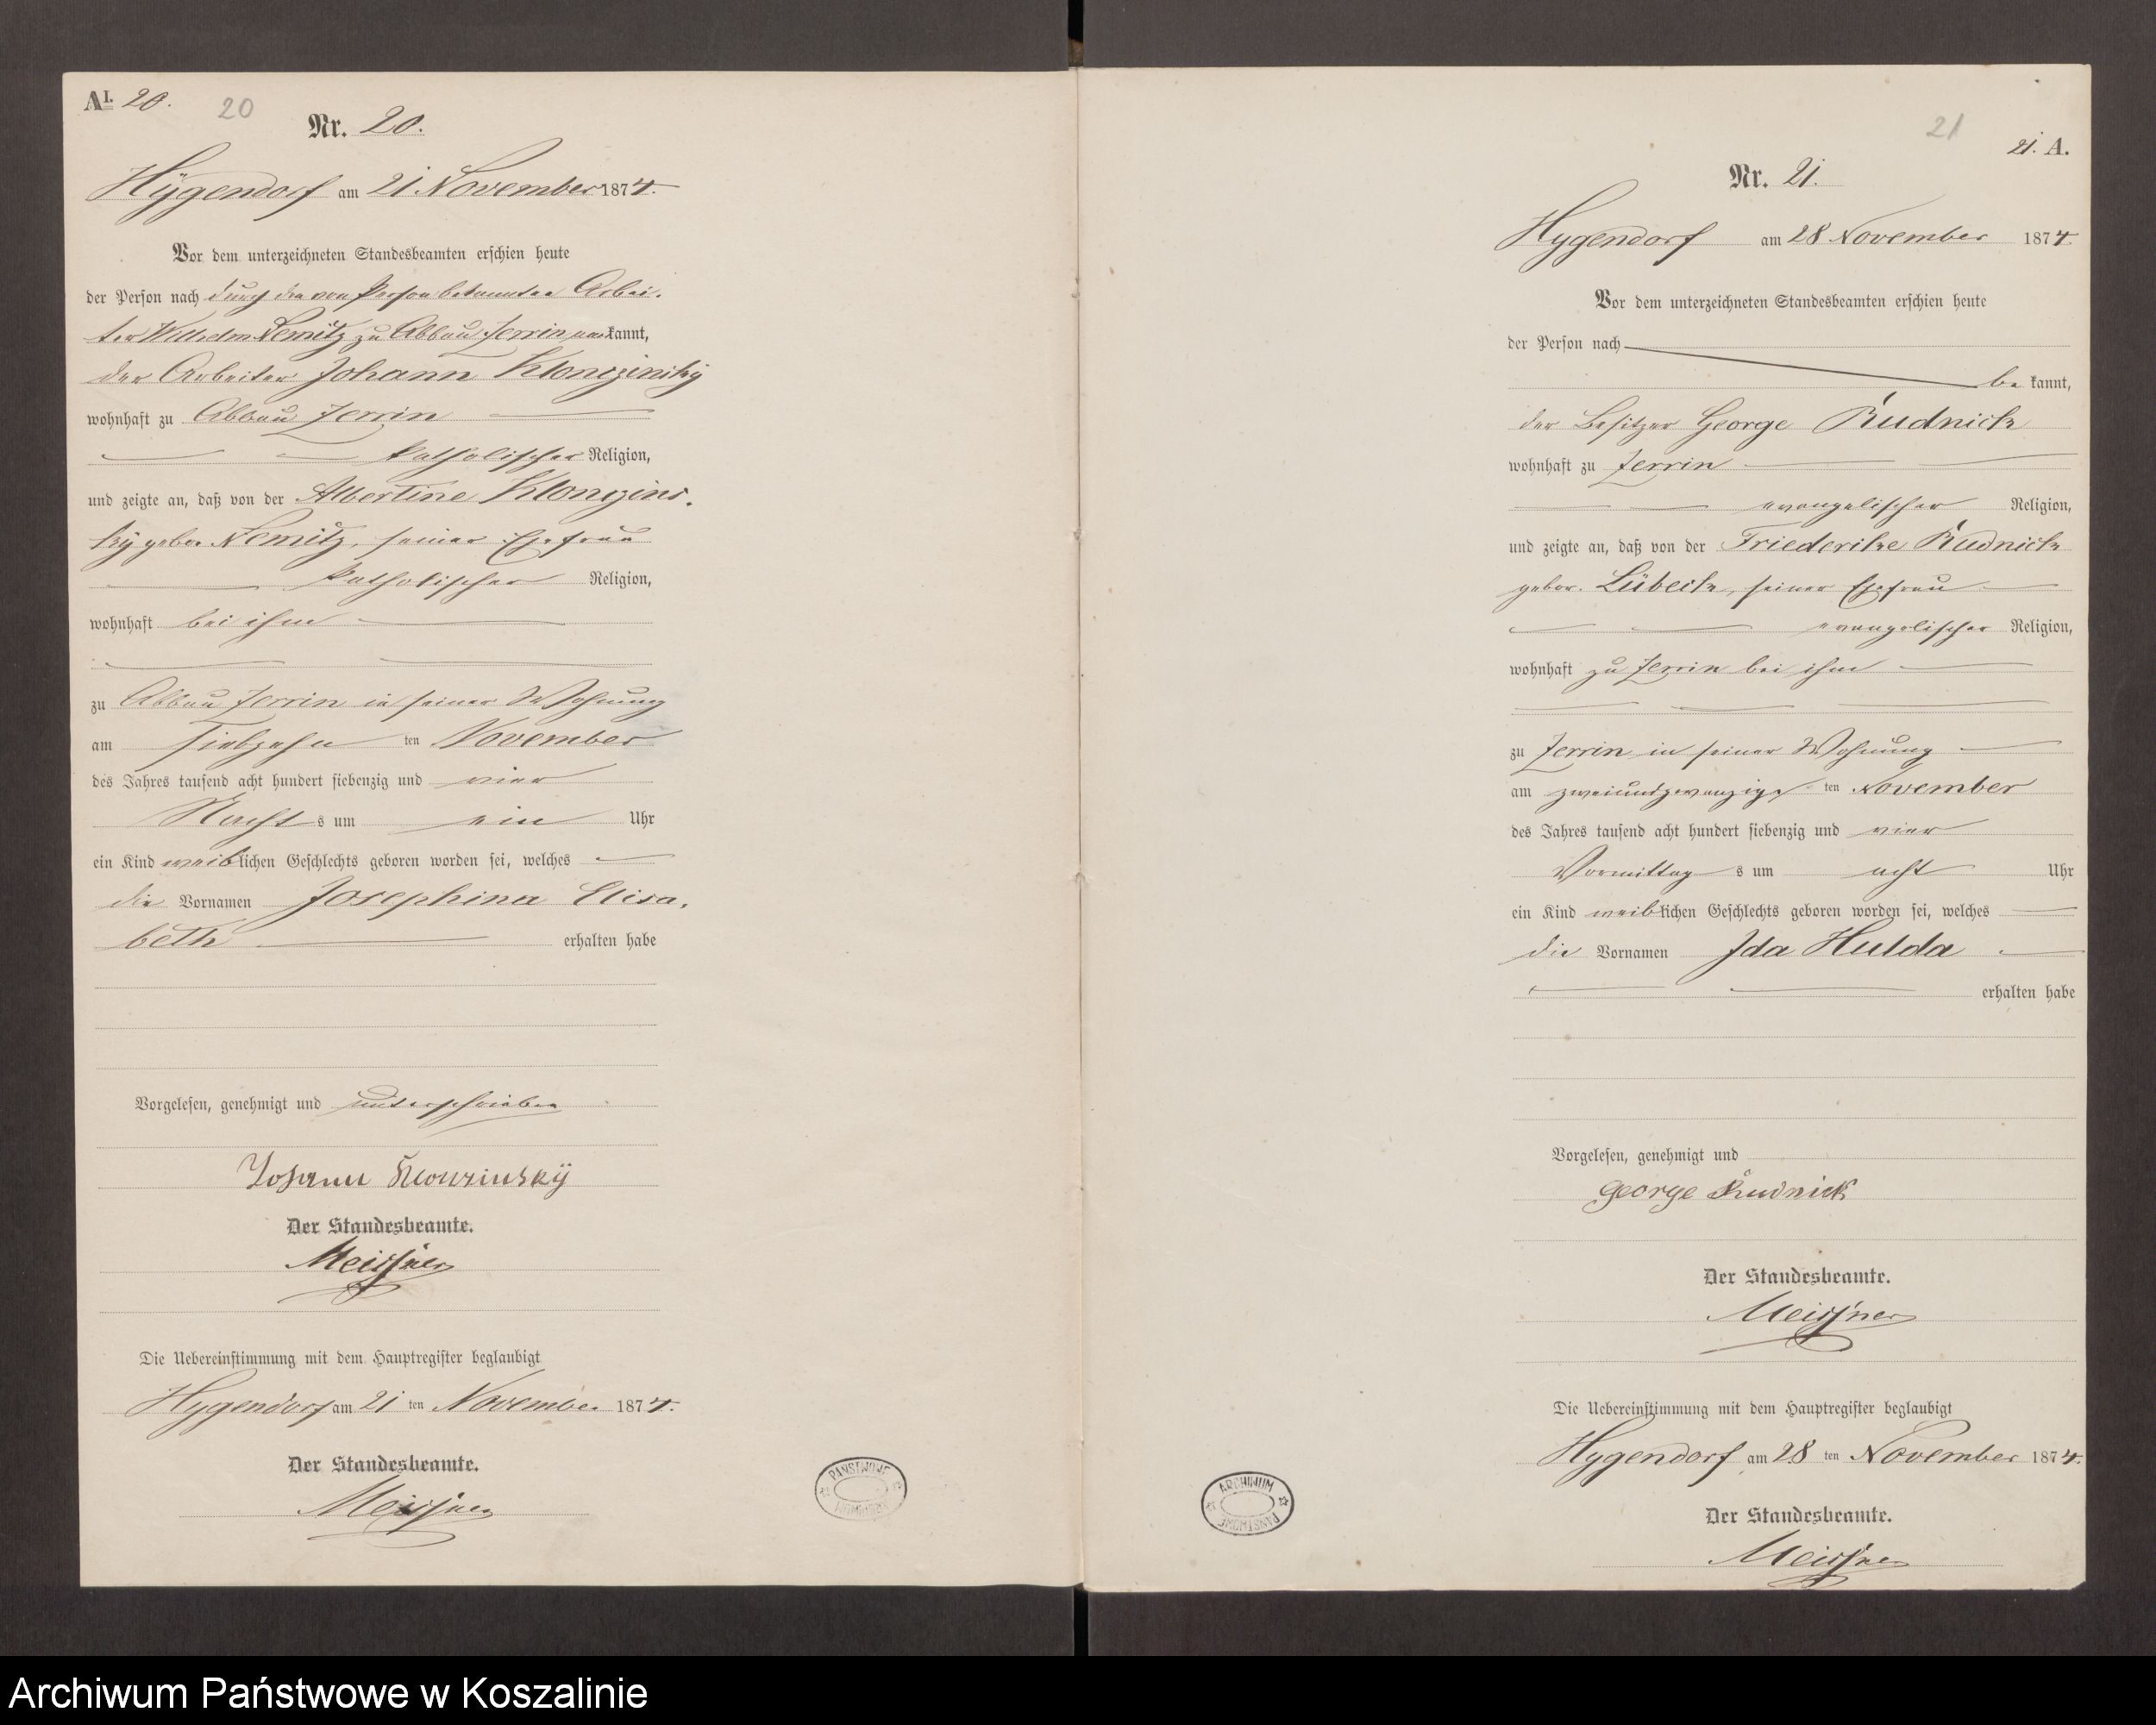 A I. 20.
20
Nr. 20.
Hÿgendorf am 21. November 1874.
Vor dem unterzeichneten Standesbeamten erschien heute
der Person nach durch den von Person bekannten Arbei-
ter Wilhelm Nemitz zu Abbau Zerrin anerkannt,
der Arbeiter Johann Klonczinsky
wohnhaft zu Abbau Zerrin
katholischer Religion,
und zeigte an, daß von der Albertine Klonczins-
ky gebor. Nemitz, seiner Ehefrau
katholischer Religion,
wohnhaft bei ihm
zu Abbau Zerrin in seiner Wohnung
am siebzehn ten November
des Jahres tausend acht hundert siebenzig und vier
Nacht s um ein Uhr
ein Kind weiblichen Geschlechts geboren worden sei, welches
die Vornamen Josephina Elisa-
beth erhalten habe
Vorgelesen, genehmigt und unterschrieben
Johann Klonzinskÿ
Der Standesbeamte.
Meissner
Die Uebereinstimmung mit dem Hauptregister beglaubigt
Hygendorf am 21 ten November 1874.
Der Standesbeamte.
Meissner
PANSTWOWE
ARCHIWUM
21
21. A.
Nr. 21.
Hygendorf am 28 November 1874.
Vor dem unterzeichneten Standesbeamten erschien heute
der Person nach
be kannt,
der Besitzer George Rudnick
wohnhaft zu Zerrin
evangelischer Religion,
und zeigte an, daß von der Friederike Rudnick
gebor. Lübeck, seiner Ehefrau
evangelischer Religion,
wohnhaft zu Zerrin bei ihm
zu Zerrin in seiner Wohnung
am zweiundzwanzigs ten November
des Jahres tausend acht hundert siebenzig und vier
Vormittag s um acht Uhr
ein Kind weiblichen Geschlechts geboren worden sei, welches
die Vornamen Ida Hulda
erhalten habe
Vorgelesen, genehmigt und
George Rudnick
Der Standesbeamte.
Meissner
Die Uebereinstimmung mit dem Hauptregister beglaubigt
Hygendorf am 28 ten November 1874.
Der Standesbeamte.
Meissner
ARCHIWUM
PANSTWOWE
Archiwum Państwowe w Koszalinie